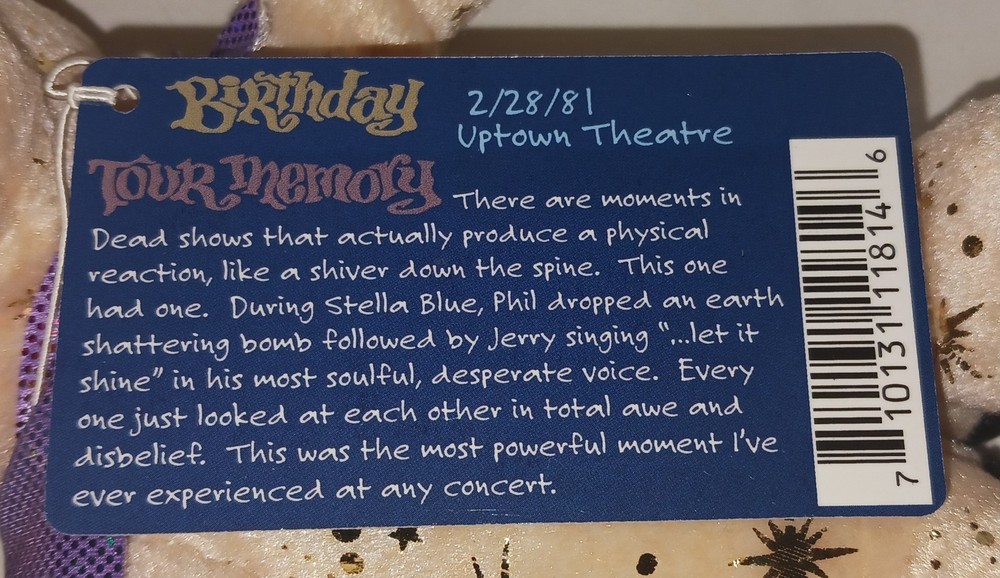 Birthday
2/28/81
Uptown Theatre
Tour Memory
There are moments in
Dead shows that actually produce a physical
reaction, like a shiver down the spine. This one
had one. During Stella Blue, Phil dropped an earth
shattering bomb followed by Jerry singing "...let it
shine" in his most soulful, desperate voice. Every
one just looked at each other in total awe and
disbelief. This was the most powerful moment I've
ever experienced at any concert.
7 10131 11814 6